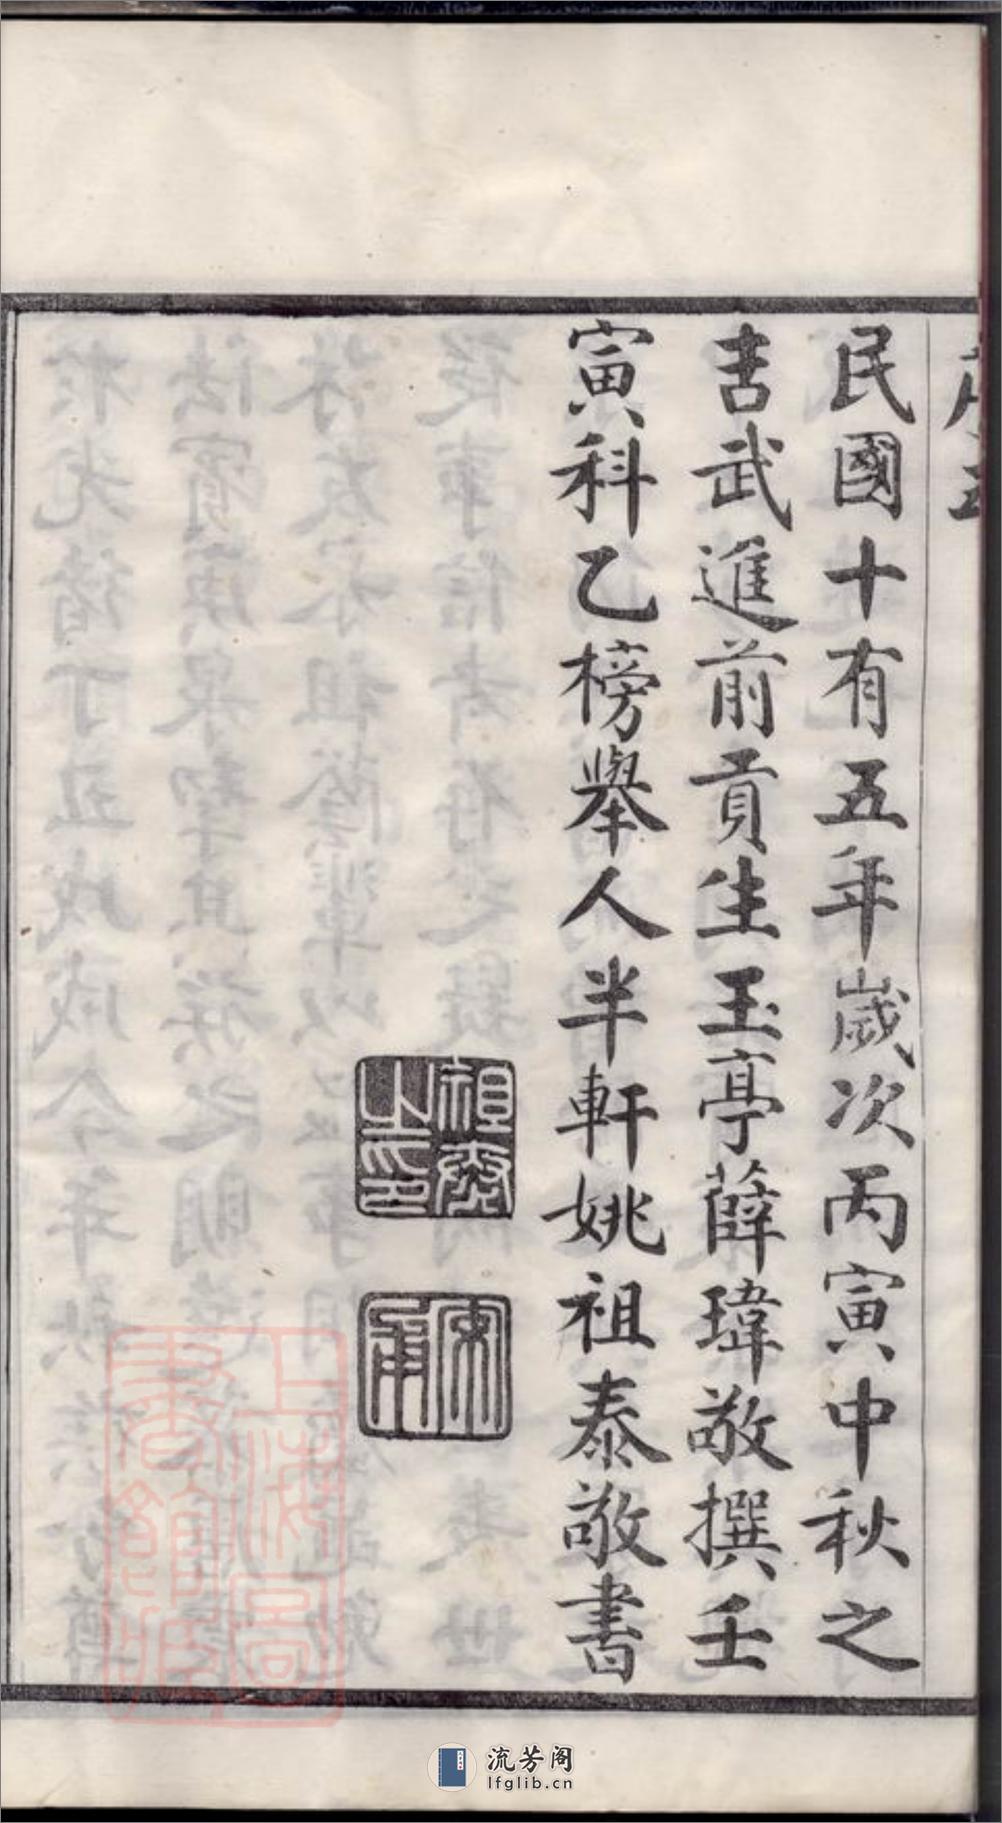 民國十有五年歲次丙寅中秋之
吉武進前貢生玉亭薛瑋敬撰壬
寅科乙榜舉人半軒姚祖泰敬書
祖泰之印
上海圖書館藏
流芳阁
lfglib.cn